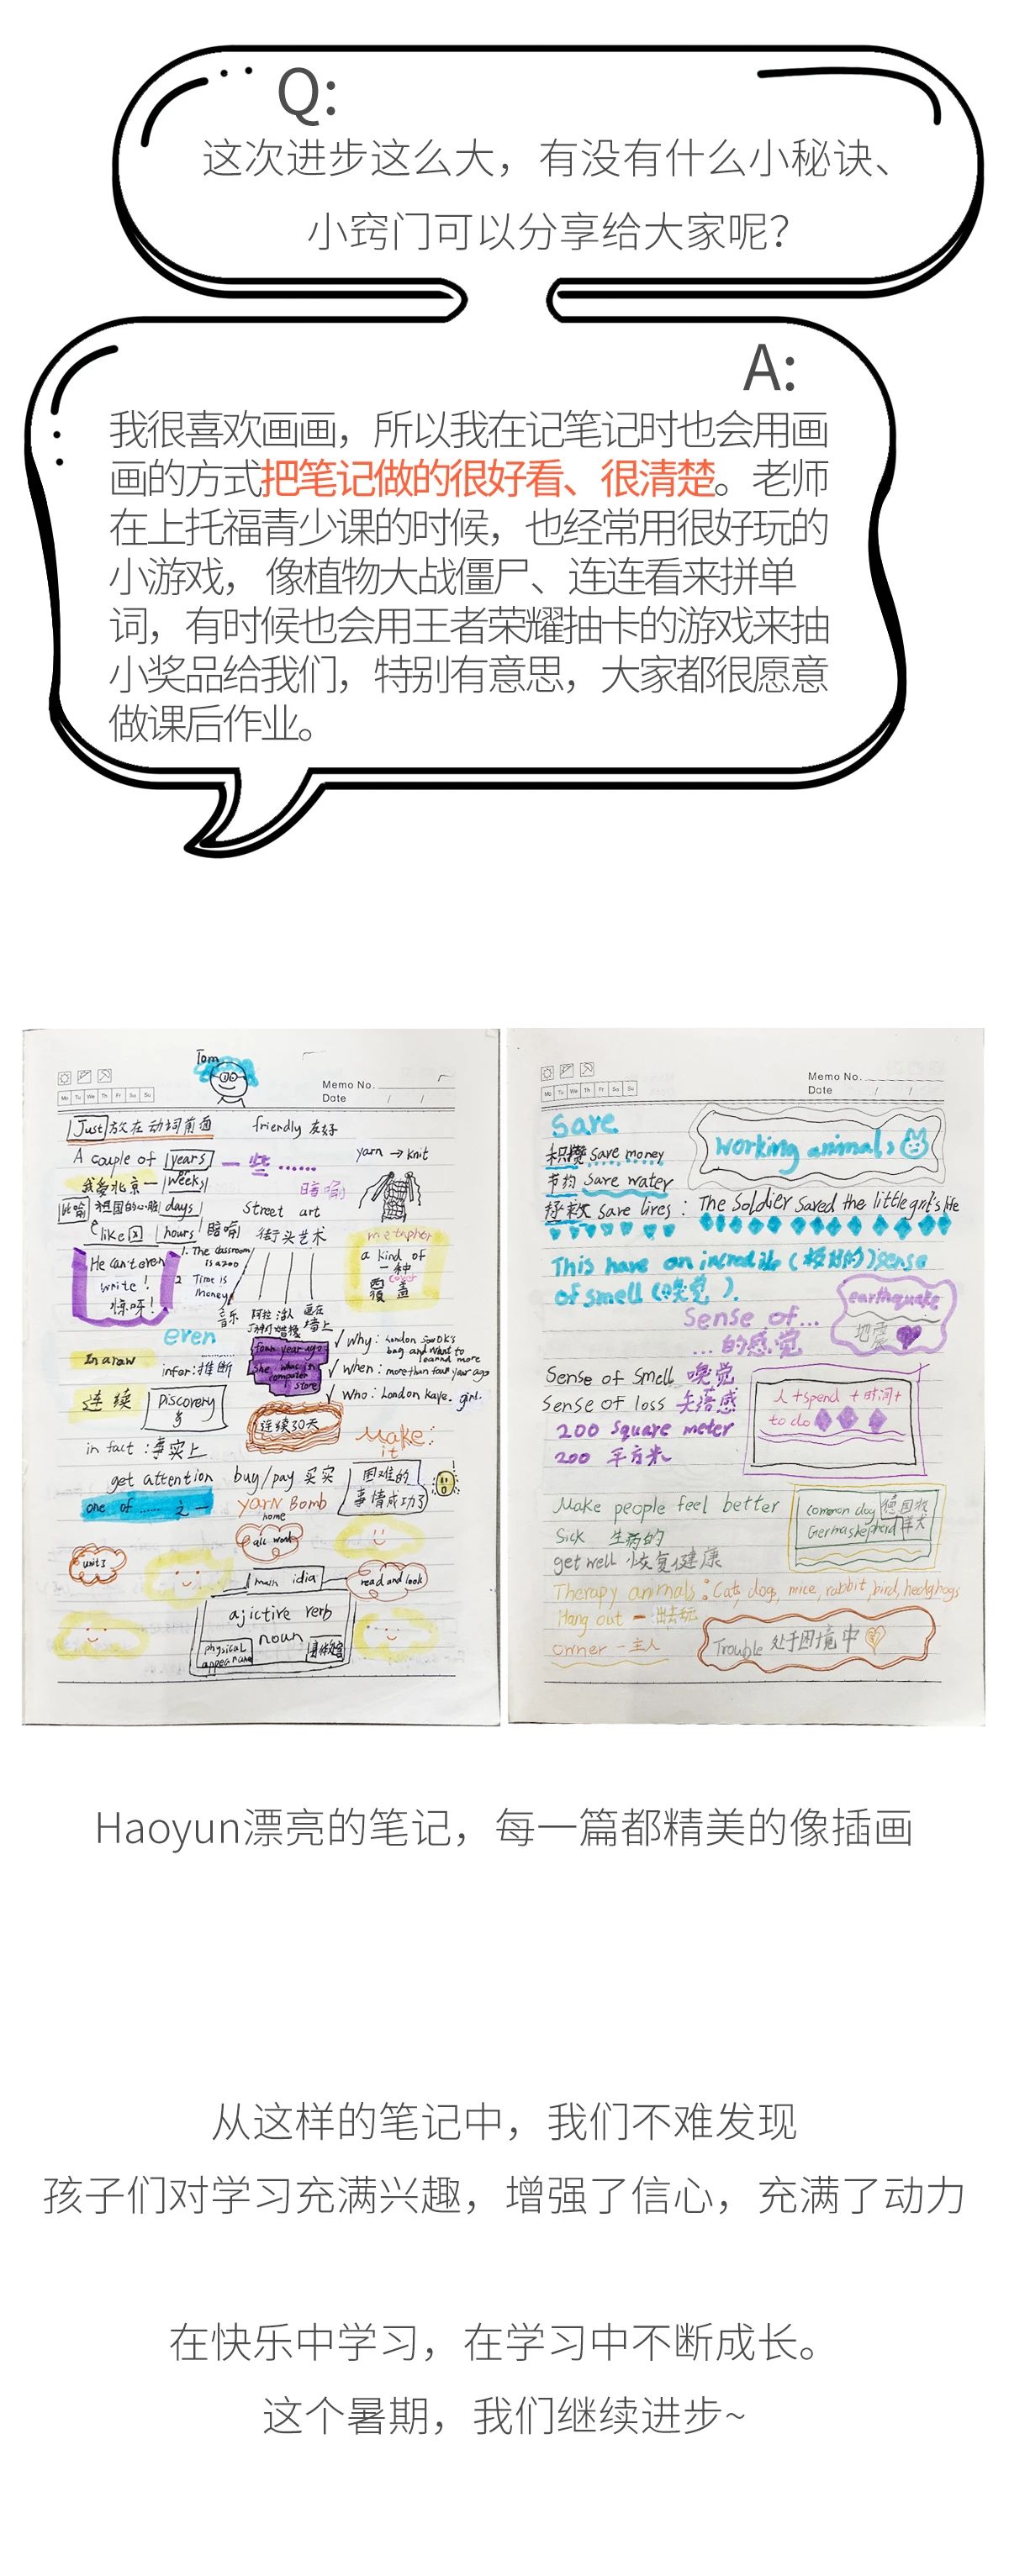 Q:
这次进步这么大，有没有什么小秘诀、
小窍门可以分享给大家呢？
A:
我很喜欢画画，所以我在记笔记时也会用画
画的方式把笔记做的很好看、很清楚。老师
在上托福青少课的时候，也经常用很好玩的
小游戏， 像植物大战僵尸、连连看来拼单
词，有时候也会用王者荣耀抽卡的游戏来抽
小奖品给我们，特别有意思，大家都很愿意
做课后作业。
Tom
Memo No.
Date / /
Mo Tu We Th Fr Sa Su
Just 放在动词前面
friendly 友好
A couple of years 一些……
weeks
yarn → knit
我爱北京一
暗喻
比喻 祖国的心脏 days
Street art
like hours 暗喻
街头艺术
metapher
a kind of
一种
cover
覆盖
He can't even
write!
惊呀!
1. The classroom
is a zoo
2 Time is
money
音乐
even
In a row
infer:推断
four year ago
computer
store
✓ Why:
✓ When: more than four year ago
✓ Who: London Kaye. girl.
连续
Discovery
连续30天
Make
it
in fact :事实上
get attention
buy/pay 买卖
困难的
事情成功了
one of …… 之一
YarN Bomb
home
all work
unit3
main idia
read and look
ajictive verb
noun
physical
appearane
Memo No.
Date / /
Mo Tu We Th Fr Sa Su
Save
working animals
积攒 save money
节约 save water
拯救 save lives : The Soldier Saved the little girl's life
This have an incredible (极好的) sense
of smell (嗅觉).
Sense of...
...的感觉
earthquake
地震
Sense of Smell 嗅觉
Sense of loss 失落感
200 Square meter
200 平方米
人+spend+时间+
to do
Make people feel better
Sick 生病的
get well 恢复健康
common dog
German shepherd
德国牧
羊犬
Therapy animals: Cat, dog, mice, rabbit, bird, hedghogs
Hang out - 出去玩
Owner - 主人
Trouble 处于困境中
Haoyun漂亮的笔记，每一篇都精美的像插画
从这样的笔记中，我们不难发现
孩子们对学习充满兴趣，增强了信心，充满了动力
在快乐中学习，在学习中不断成长。
这个暑期，我们继续进步~